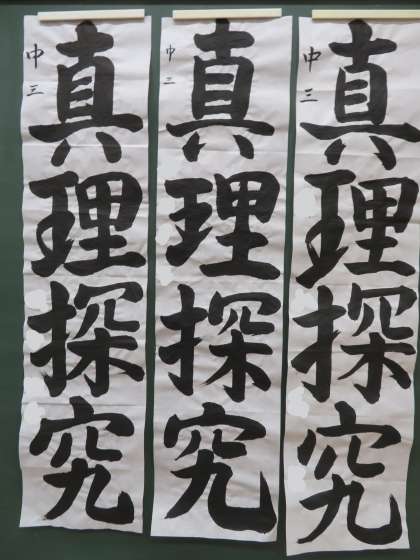 真理探究
中三
真理探究
中三
真理探究
中三